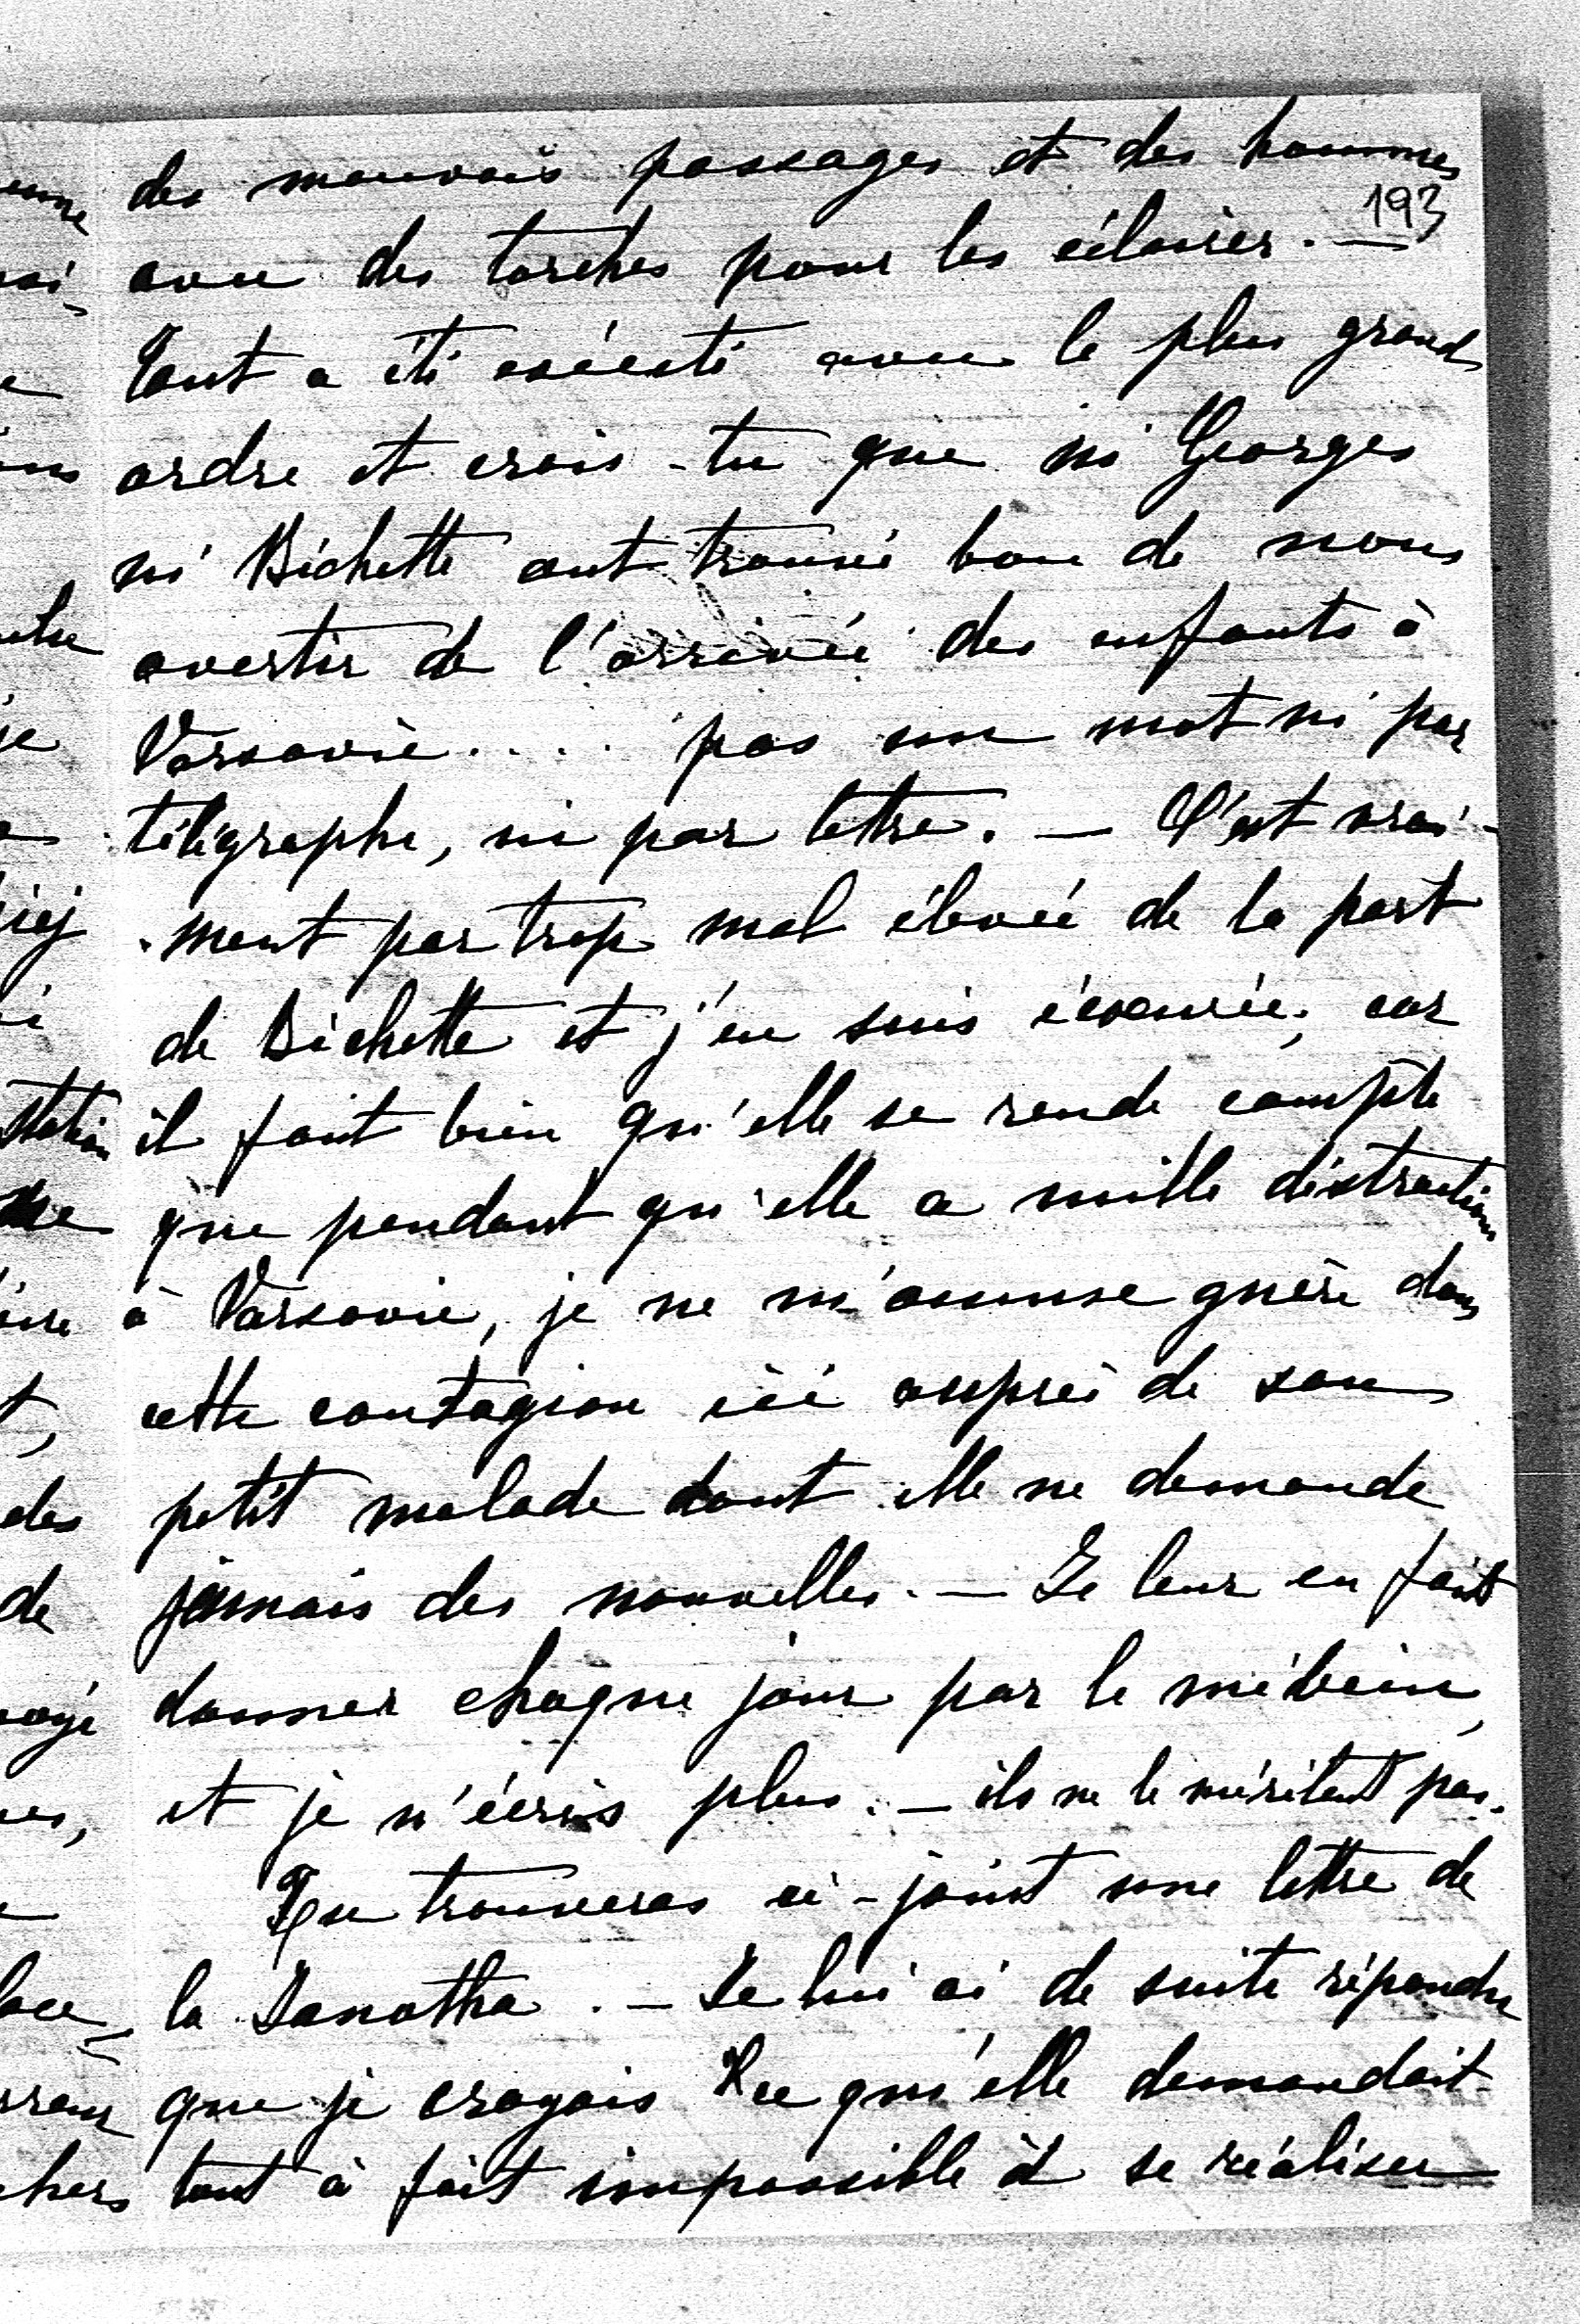 des mauvais passages et des hommes
193
avec des torches pour les éclairer. —
Tout a été exécuté avec le plus grand
ordre et crois-tu que ni Georges
ni Bichette ont trouvé bon de nous
avertir de l'arrivée des enfants à
Varsovie.... pas un mot ni par
télégraphe, ni par lettre. — C'est vrai-
ment par trop mal élevé de la part
de Bichette et j'en suis écoeurée, car
il faut bien qu'elle se rende compte
que pendant qu'elle a mille distractions
à Varsovie, je ne m'amuse guère dans
cette contagion ici auprès de son
petit malade dont elle ne demande
jamais des nouvelles. — Je leur en fais
donner chaque jour par le médecin,
et je n'écris plus. — ils ne le méritent pas.
Tu trouveras ci-joint une lettre de
la Janotha. — Je lui ai de suite répondu
que je croyais ce qu'elle demandait
tout à fait impossible à se réaliser